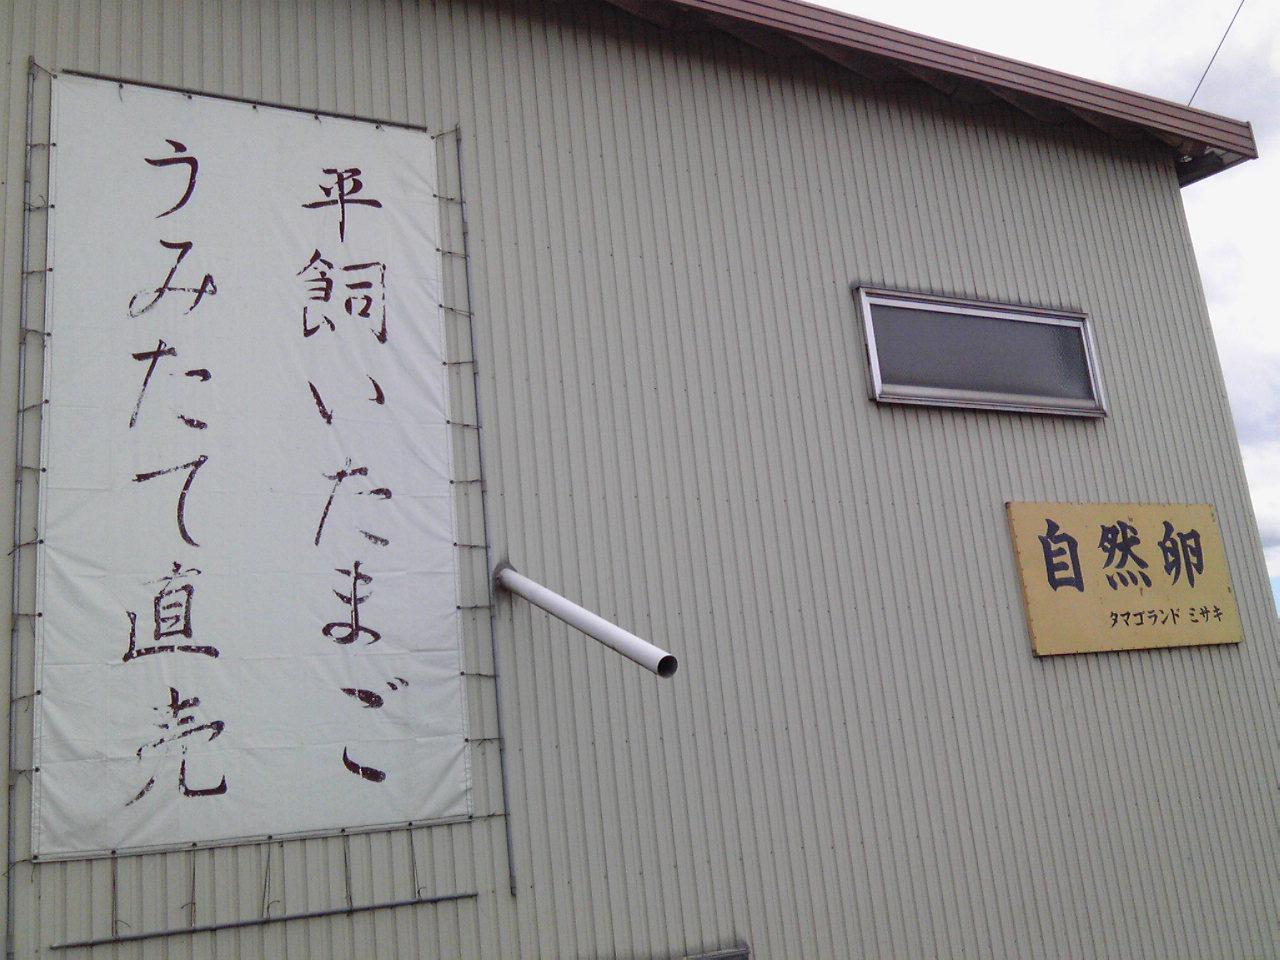 平飼いたまご
うみたて直売
自然卵
タマゴランド ミサキ